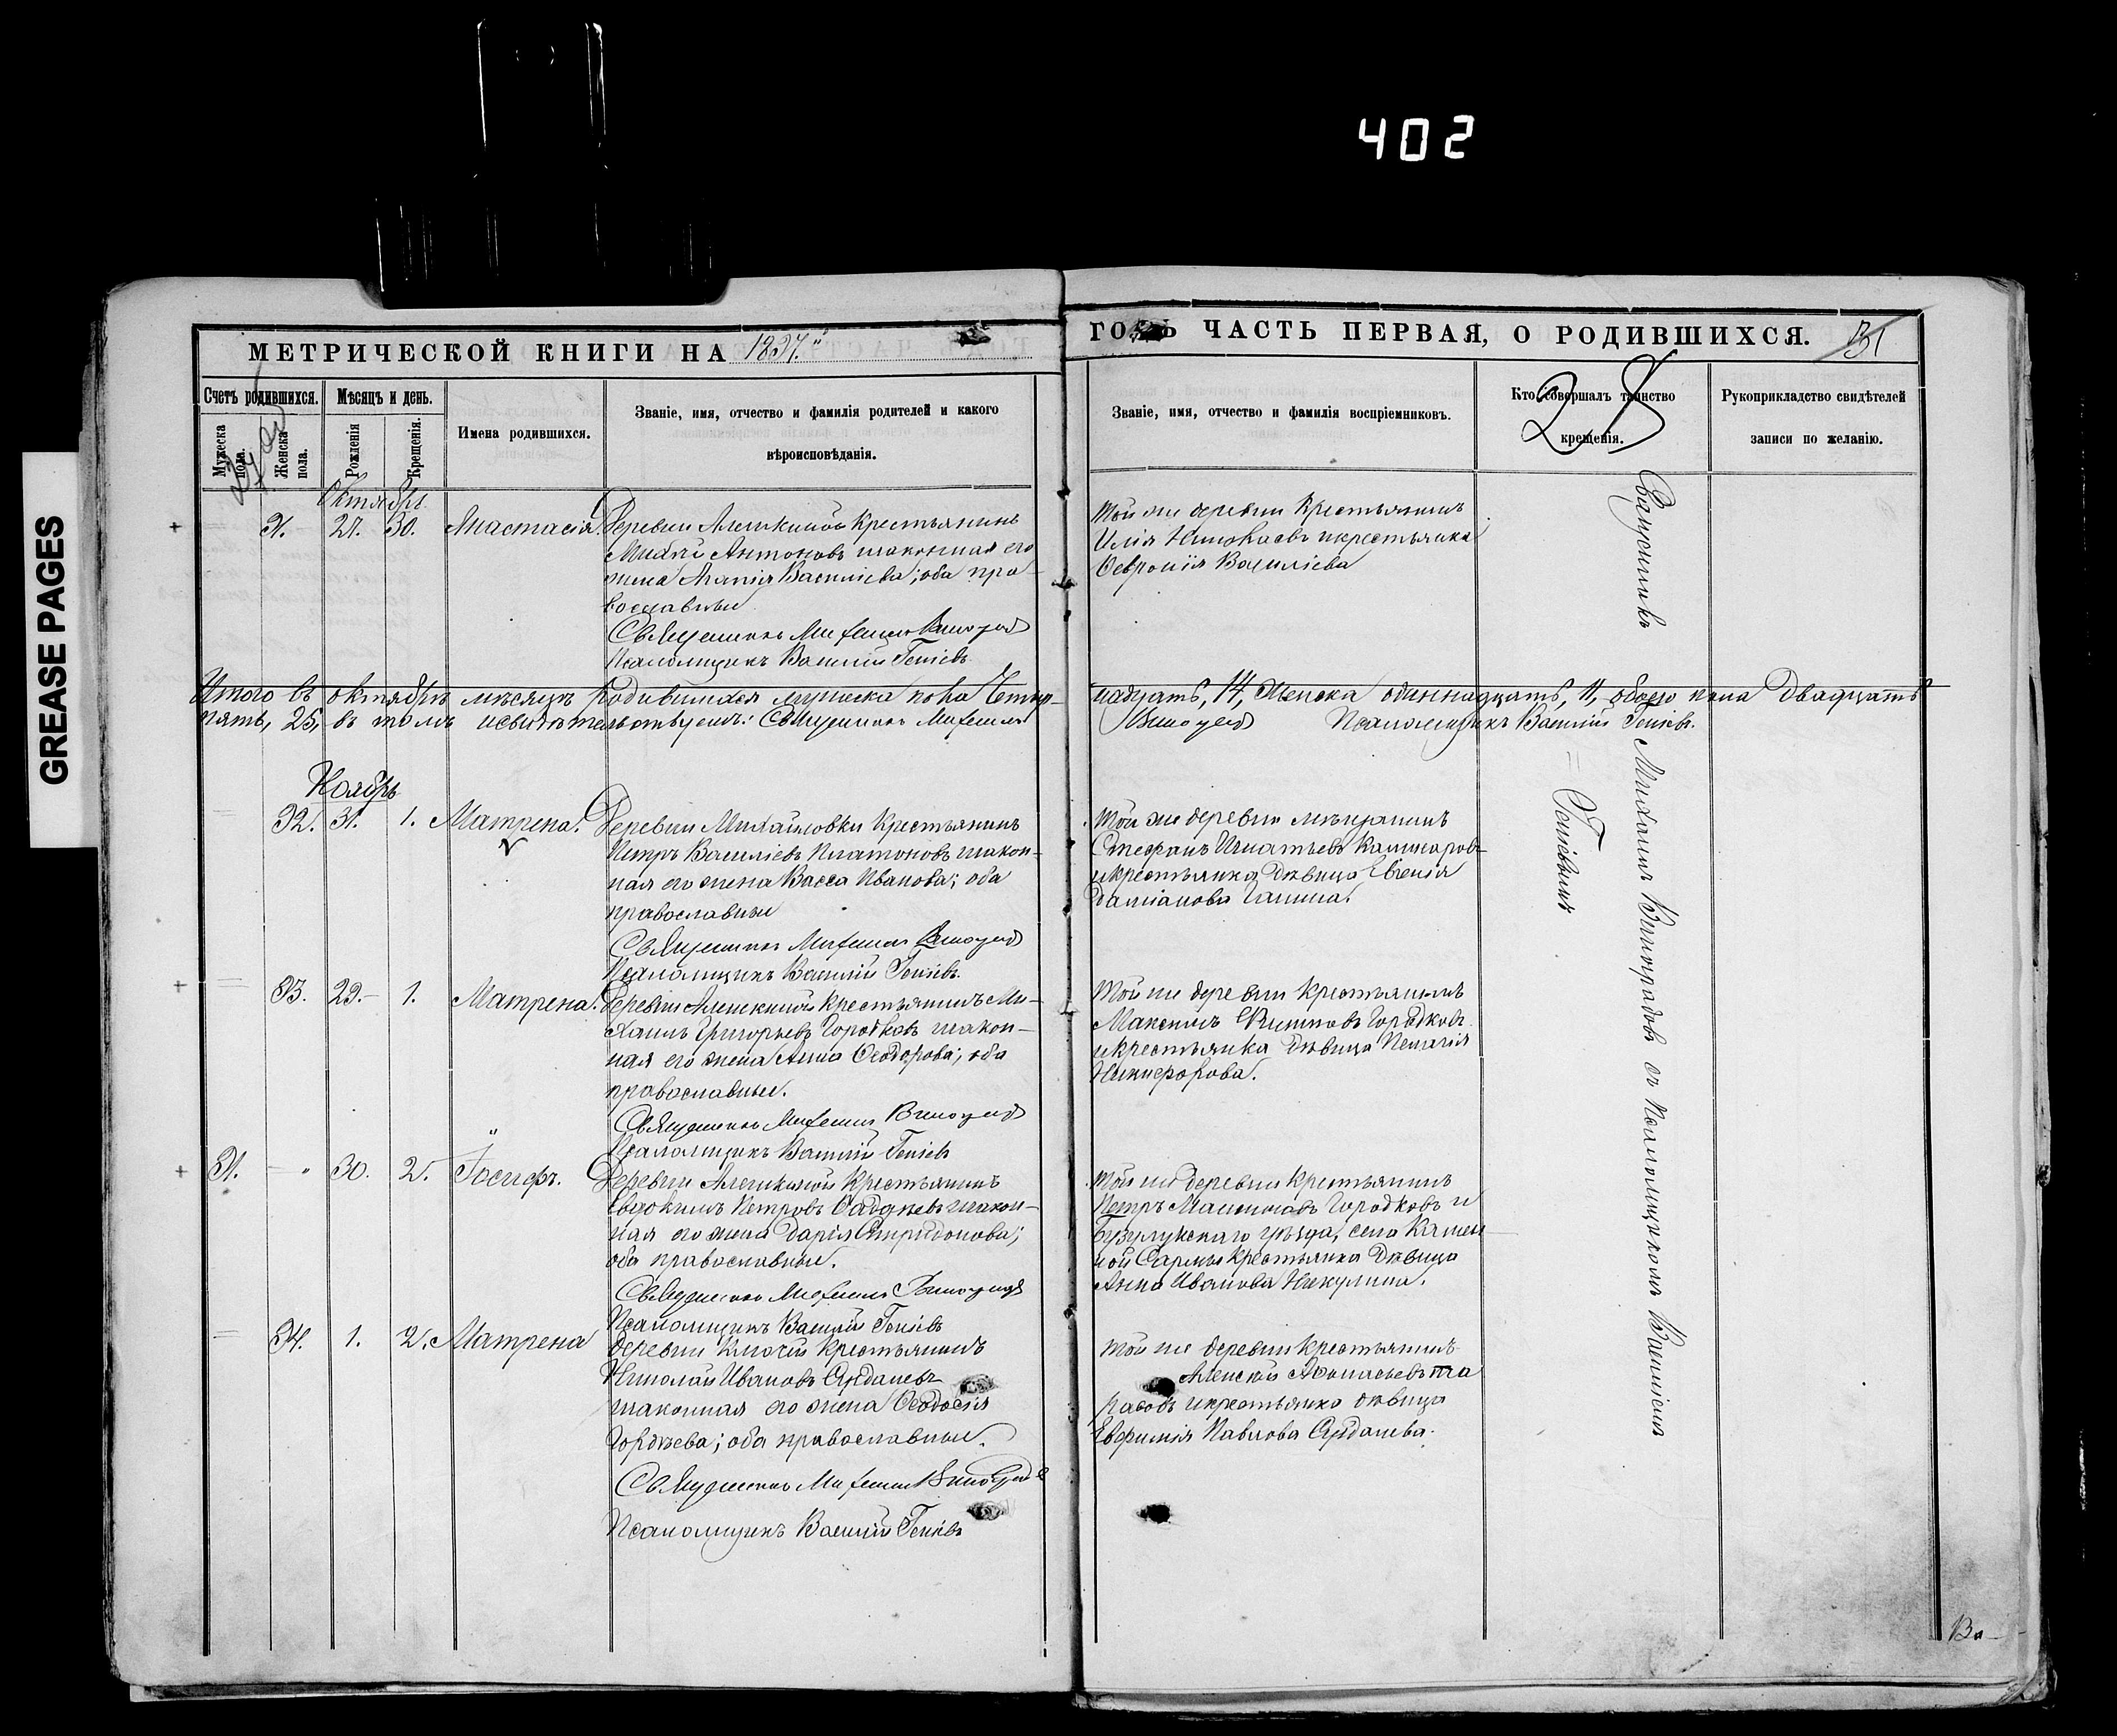 402
GREASE PAGES
МЕТРИЧЕСКОЙ КНИГИ НА 1897.
ГОДЪ ЧАСТЬ ПЕРВАЯ, О РОДИВШИХСЯ.
Счетъ родившихся.
Мѣсяцъ и день.
Имена родившихся.
Званіе, имя, отчество и фамилія родителей и какого
вѣроисповѣданія.
Мужеска пола.
Женска пола.
Рожденія
Крещенія.
Званіе, имя, отчество и фамилія воспріемниковъ.
Кто совершалъ таинство
крещенія.
28
Рукоприкладство свидѣтелей
записи по желанію.
Октябрь
31. 27. 30. Анастасія.
Деревни крестьянинъ
Антоновъ изаконная его
жена Агапія Васильева; оба пра-
вославныи
Священникъ Михаилъ Виноградовъ
Псаломщикъ Василій Геніевъ
Той же деревни крестьянинъ
Илія Николаевъ икрестьянка
Ѳевронія Васильева
Итого въ октябрѣ мѣсяцѣ родившихся мужеска пола четыр-
надцать, 14, женска одиннадцать, 11, обоего пола двадцать
пять, 25, въ томъ исвидѣтельствуемъ: Священникъ Михаилъ
Виноградовъ Псаломщикъ Василій Геніевъ.
Ноябрь
32. 31. 1. Матрена.
Деревни Михайловки крестьянинъ
Петръ Васильевъ Платоновъ изакон-
ная его жена Васса Иванова; оба
православныи
Священникъ Михаилъ Виноградовъ
Псаломщикъ Василій Геніевъ.
Той же деревни мѣщанинъ
Стефанъ Игнатьевъ
икрестьянка дѣвица Евгенія
Даміанова
33. 29. 1. Матрена.
Деревни крестьянинъ Ми-
хаилъ Григорьевъ Городковъ изакон-
ная его жена Анна Ѳеодорова; оба
православныи.
Священникъ Михаилъ Виноградовъ
Псаломщикъ Василій Геніевъ
Той же деревни крестьянинъ
Максимъ Городковъ
икрестьянка дѣвица Пелагія
Никифорова.
31. 30. 2. Іосифъ.
Деревни крестьянинъ
Евдокимъ Петровъ изакон-
ная его жена Дарія Спиридонова;
оба православныи.
Священникъ Михаилъ Виноградовъ
Псаломщикъ Василій Геніевъ
Той же деревни крестьянинъ
Петръ Городковъ и
Бузулукскаго уѣзда, села Камен
ной Сармы крестьянка дѣвица
Анна Иванова Никулина.
34. 1. 2. Матрена
Деревни Ключей крестьянинъ
Николай Ивановъ
изаконная его жена Ѳеодосія
Гордѣева; оба православныи.
Священникъ Михаилъ Виноградовъ
Псаломщикъ Василій Геніевъ
Той же деревни крестьянинъ
Алексѣй Аѳанасьевъ Та
расовъ икрестьянка дѣвица
Евфимія Павлова
Священникъ Михаилъ Виноградовъ съ псаломщикомъ Василіемъ
Геніевымъ